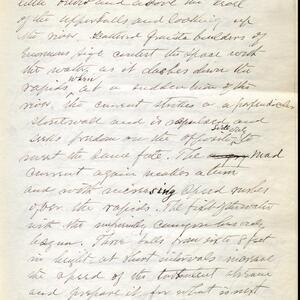 and above the
of the upper falls and looking up
the river. Scattered granite boulders of
enormous size contest the space with
the water as it dashes down the
rapids, when at a sudden turn of the
river, the current strikes a perpendicular
and is repulsed and
seeks freedom on the opposite side only to
meet the same fate. The mad
current again makes a turn
and with increasing speed rushes
over the rapids. The
with the
begun. Three falls from six to 8 feet
in height at short intervals increase
the speed of the stream
and prepare it for what is next